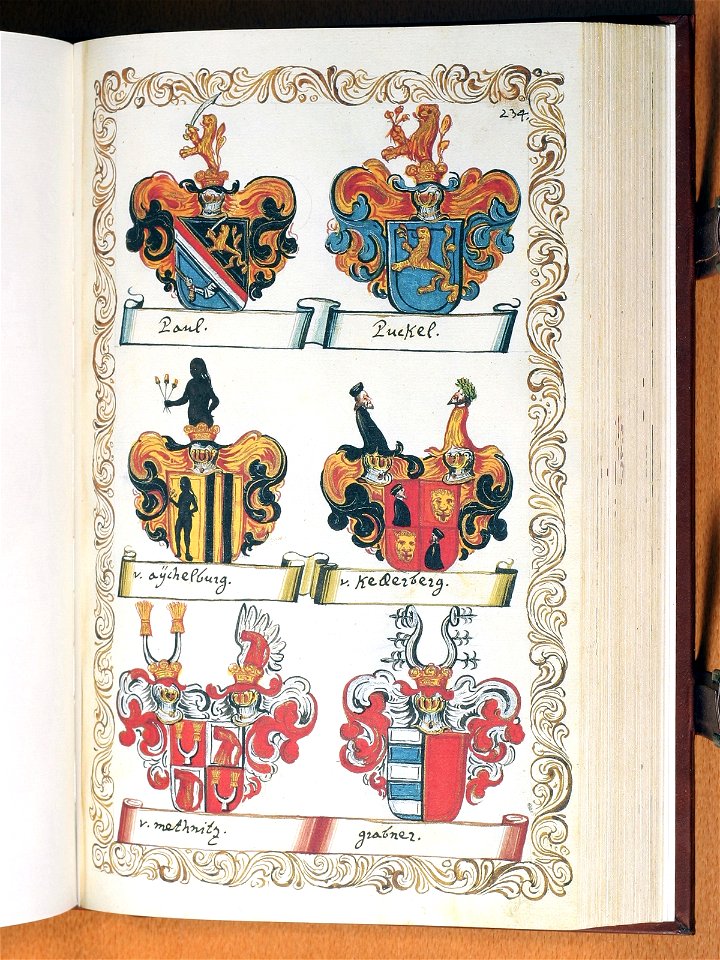 234.
Paul.
Puckel.
v. aÿchelburg.
v. Kellerberg.
v. methnitz.
grabner.